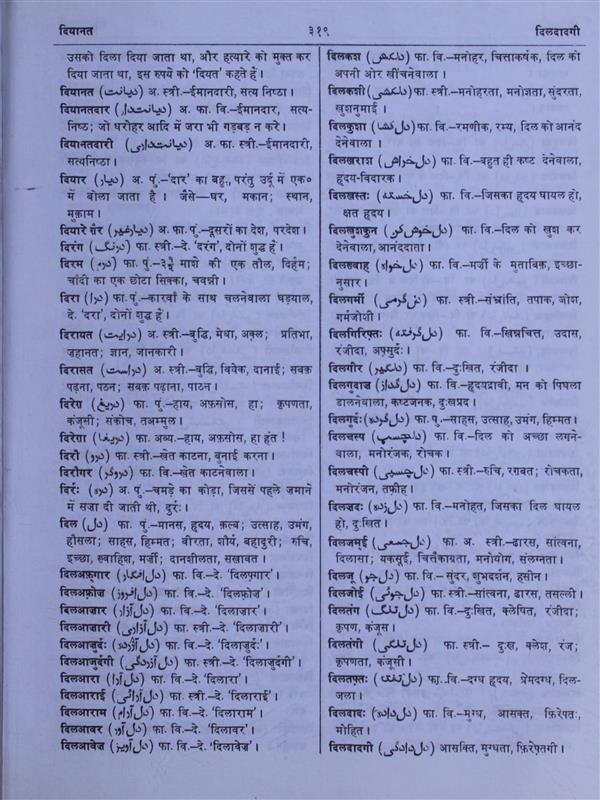 दियानत
३१९
दिलदादगी
उसको दिला दिया जाता था, और हत्यारे को मुक्त कर
दिया जाता था, इस रुपये को 'दियत' कहते हैं।
दियानत (دیانت) अ. स्त्री.–ईमानदारी, सत्य निष्ठा।
दियानतदार (دیانتدار) अ. फा. वि.–ईमानदार, सत्य-
निष्ठ; जो धरोहर आदि में जरा भी गड़बड़ न करे।
दियानतदारी (دیانتداری) अ. फा. स्त्री.–ईमानदारी,
सत्यनिष्ठा।
दियार (دیار) अ. पुं.–'दार' का बहु., परंतु उर्दू में एक०
में बोला जाता है। जैसे–घर, मकान; स्थान,
मुक़ाम।
दियारे ग़ैर (دیارغیر) अ. फा. पुं.–दूसरों का देश, परदेश।
दिरंग (درنگ) फा. स्त्री.–दे. 'दरंग', दोनों शुद्ध हैं।
दिरम (درم) फा. पुं.–३½ माशे की एक तौल, दिर्हम;
चांदी का एक छोटा सिक्का, चवन्नी।
दिरा (درا) फा. पुं.–कारवाँ के साथ चलनेवाला घड़याल,
दे. 'दरा', दोनों शुद्ध हैं।
दिरायत (درایت) अ. स्त्री.–बुद्धि, मेधा, अक़्ल; प्रतिभा,
ज़हानत; ज्ञान, जानकारी।
दिरासत (دراست) अ. स्त्री.–बुद्धि, विवेक, दानाई; सबक़
पढ़ना, पठन; सबक़ पढ़ाना, पाठन।
दिरेग़ (دریغ) फा. पुं.–हाय, अफ़सोस, हा; कृपणता,
कंजूसी; संकोच, तअम्मुल।
दिरेग़ा (دریغا) फा. अव्य.–हाय, अफ़सोस, हा हंत!
दिरौ (درو) फा. स्त्री.–खेत काटना, बुनाई करना।
दिरौगर (دروگر) फा. वि.–खेत काटनेवाला।
दिर्रः (درہ) अ. पुं.–चमड़े का कोड़ा, जिससें पहले जमाने
में सजा दी जाती थी, दुर्रः।
दिल (دل) फा. पुं.–मानस, हृदय, क़ल्ब; उत्साह, उमंग,
हौसला; साहस, हिम्मत; वीरता, शौर्य, बहादुरी; रुचि,
इच्छा, ख्वाहिश, मर्जी; दानशीलता, सखावत।
दिलअफ़्गार (دل افگار) फा. वि.–दे. 'दिलफ़्गार'।
दिलअफ़्रोज़ (دل افروز) फा. वि.–दे. 'दिलफ़्रोज़'।
दिलआज़ार (دل آزار) फा. वि.–दे. 'दिलाज़ार'।
दिलआज़ारी (دل آزاری) फा. स्त्री.–दे. 'दिलाज़ारी'।
दिलआजुर्दः (دل آزردہ) फा. वि.–दे. 'दिलाजुर्दः'।
दिलआजुर्दगी (دل آزردگی) फा. स्त्री.–दे. 'दिलाजुर्दगी'।
दिलआरा (دل آرا) फा. वि.–दे. 'दिलारा'।
दिलआराई (دل آرائی) फा. स्त्री.–दे. 'दिलाराई'।
दिलआराम (دل آرام) फा. वि.–दे. 'दिलाराम'।
दिलआवर (دل آور) फा. वि.–दे. 'दिलावर'।
दिलआवेज़ (دل آویز) फा. वि.–दे. 'दिलावेज़'।
दिलकश (دلکش) फा. वि.–मनोहर, चित्ताकर्षक, दिल को
अपनी ओर खींचनेवाला।
दिलकशी (دلکشی) फा. स्त्री.–मनोहरता, मनोज्ञता, सुंदरता,
खुशनुमाई।
दिलकुशा (دل کشا) फा. वि.–रमणीक, रम्य, दिल को आनंद
देनेवाला।
दिलख़राश (دل خراش) फा. वि.–बहुत ही कष्ट देनेवाला,
हृदय-विदारक।
दिलख़स्तः (دل خستہ) फा. वि.–जिसका हृदय घायल हो,
क्षत हृदय।
दिलख़ुशकुन (دل خوش کن) फा. वि.–दिल को खुश कर
देनेवाला, आनंददाता।
दिलख़्वाह (دل خواہ) फा. वि.–मर्जी के मुताबिक़, इच्छा-
नुसार।
दिलगर्मी (دل گرمی) फा. स्त्री.–संभ्रांति, तपाक, जोश,
गर्मजोशी।
दिलगिरिफ़्तः (دل گرفتہ) फा. वि.–खिन्नचित्त, उदास,
रंजीदा, अफ़्सुर्दः।
दिलगीर (دلگیر) फा. वि.–दुःखित, रंजीदा।
दिलगुदाज़ (دل گداز) फा. वि.–हृदयद्रावी, मन को पिघला
डालनेवाला, कष्टजनक, दुःखप्रद।
दिलगुर्दः (دل گردہ) फा. पु.–साहस, उत्साह, उमंग, हिम्मत।
दिलचस्प (دلچسپ) फा. वि.–दिल को अच्छा लगने-
वाला, मनोरंजक, रोचक।
दिलचस्पी (دل چسپی) फा. स्त्री.–रुचि, रग़बत; रोचकता,
मनोरंजन, तफ़्रीह।
दिलज़दः (دل زدہ) फा. वि.–मनोहत, जिसका दिल घायल
हो, दुःखित।
दिलजमई (دل جمعی) फा. अ. स्त्री.–ढारस, सांत्वना,
दिलासा; यकसूई, चित्तैकाग्रता, मनोयोग, संलग्नता।
दिलजू (دل جو) फा. वि.– सुंदर, शुभदर्शन, हसीन।
दिलजोई (دل جوئی) फा. स्त्री.–सांत्वना, ढारस, तसल्ली।
दिलतंग (دل تنگ) फा. वि.–दुःखित, क्लेषित, रंजीदा;
कृपण, कंजूस।
दिलतंगी (دل تنگی) फा. स्त्री.– दुःख, क्लेश, रंज;
कृपणता, कंजूसी।
दिलतफ़्तः (دل تفتہ) फा. वि.–दग्ध हृदय, प्रेमदग्ध, दिल-
जला।
दिलदादः (دل دادہ) फा. वि.–मुग्ध, आसक्त, फ़िरेफ़्तः,
मोहित।
दिलदादगी (دل دادگی) आसक्ति, मुग्धता, फ़िरेफ़्तगी।